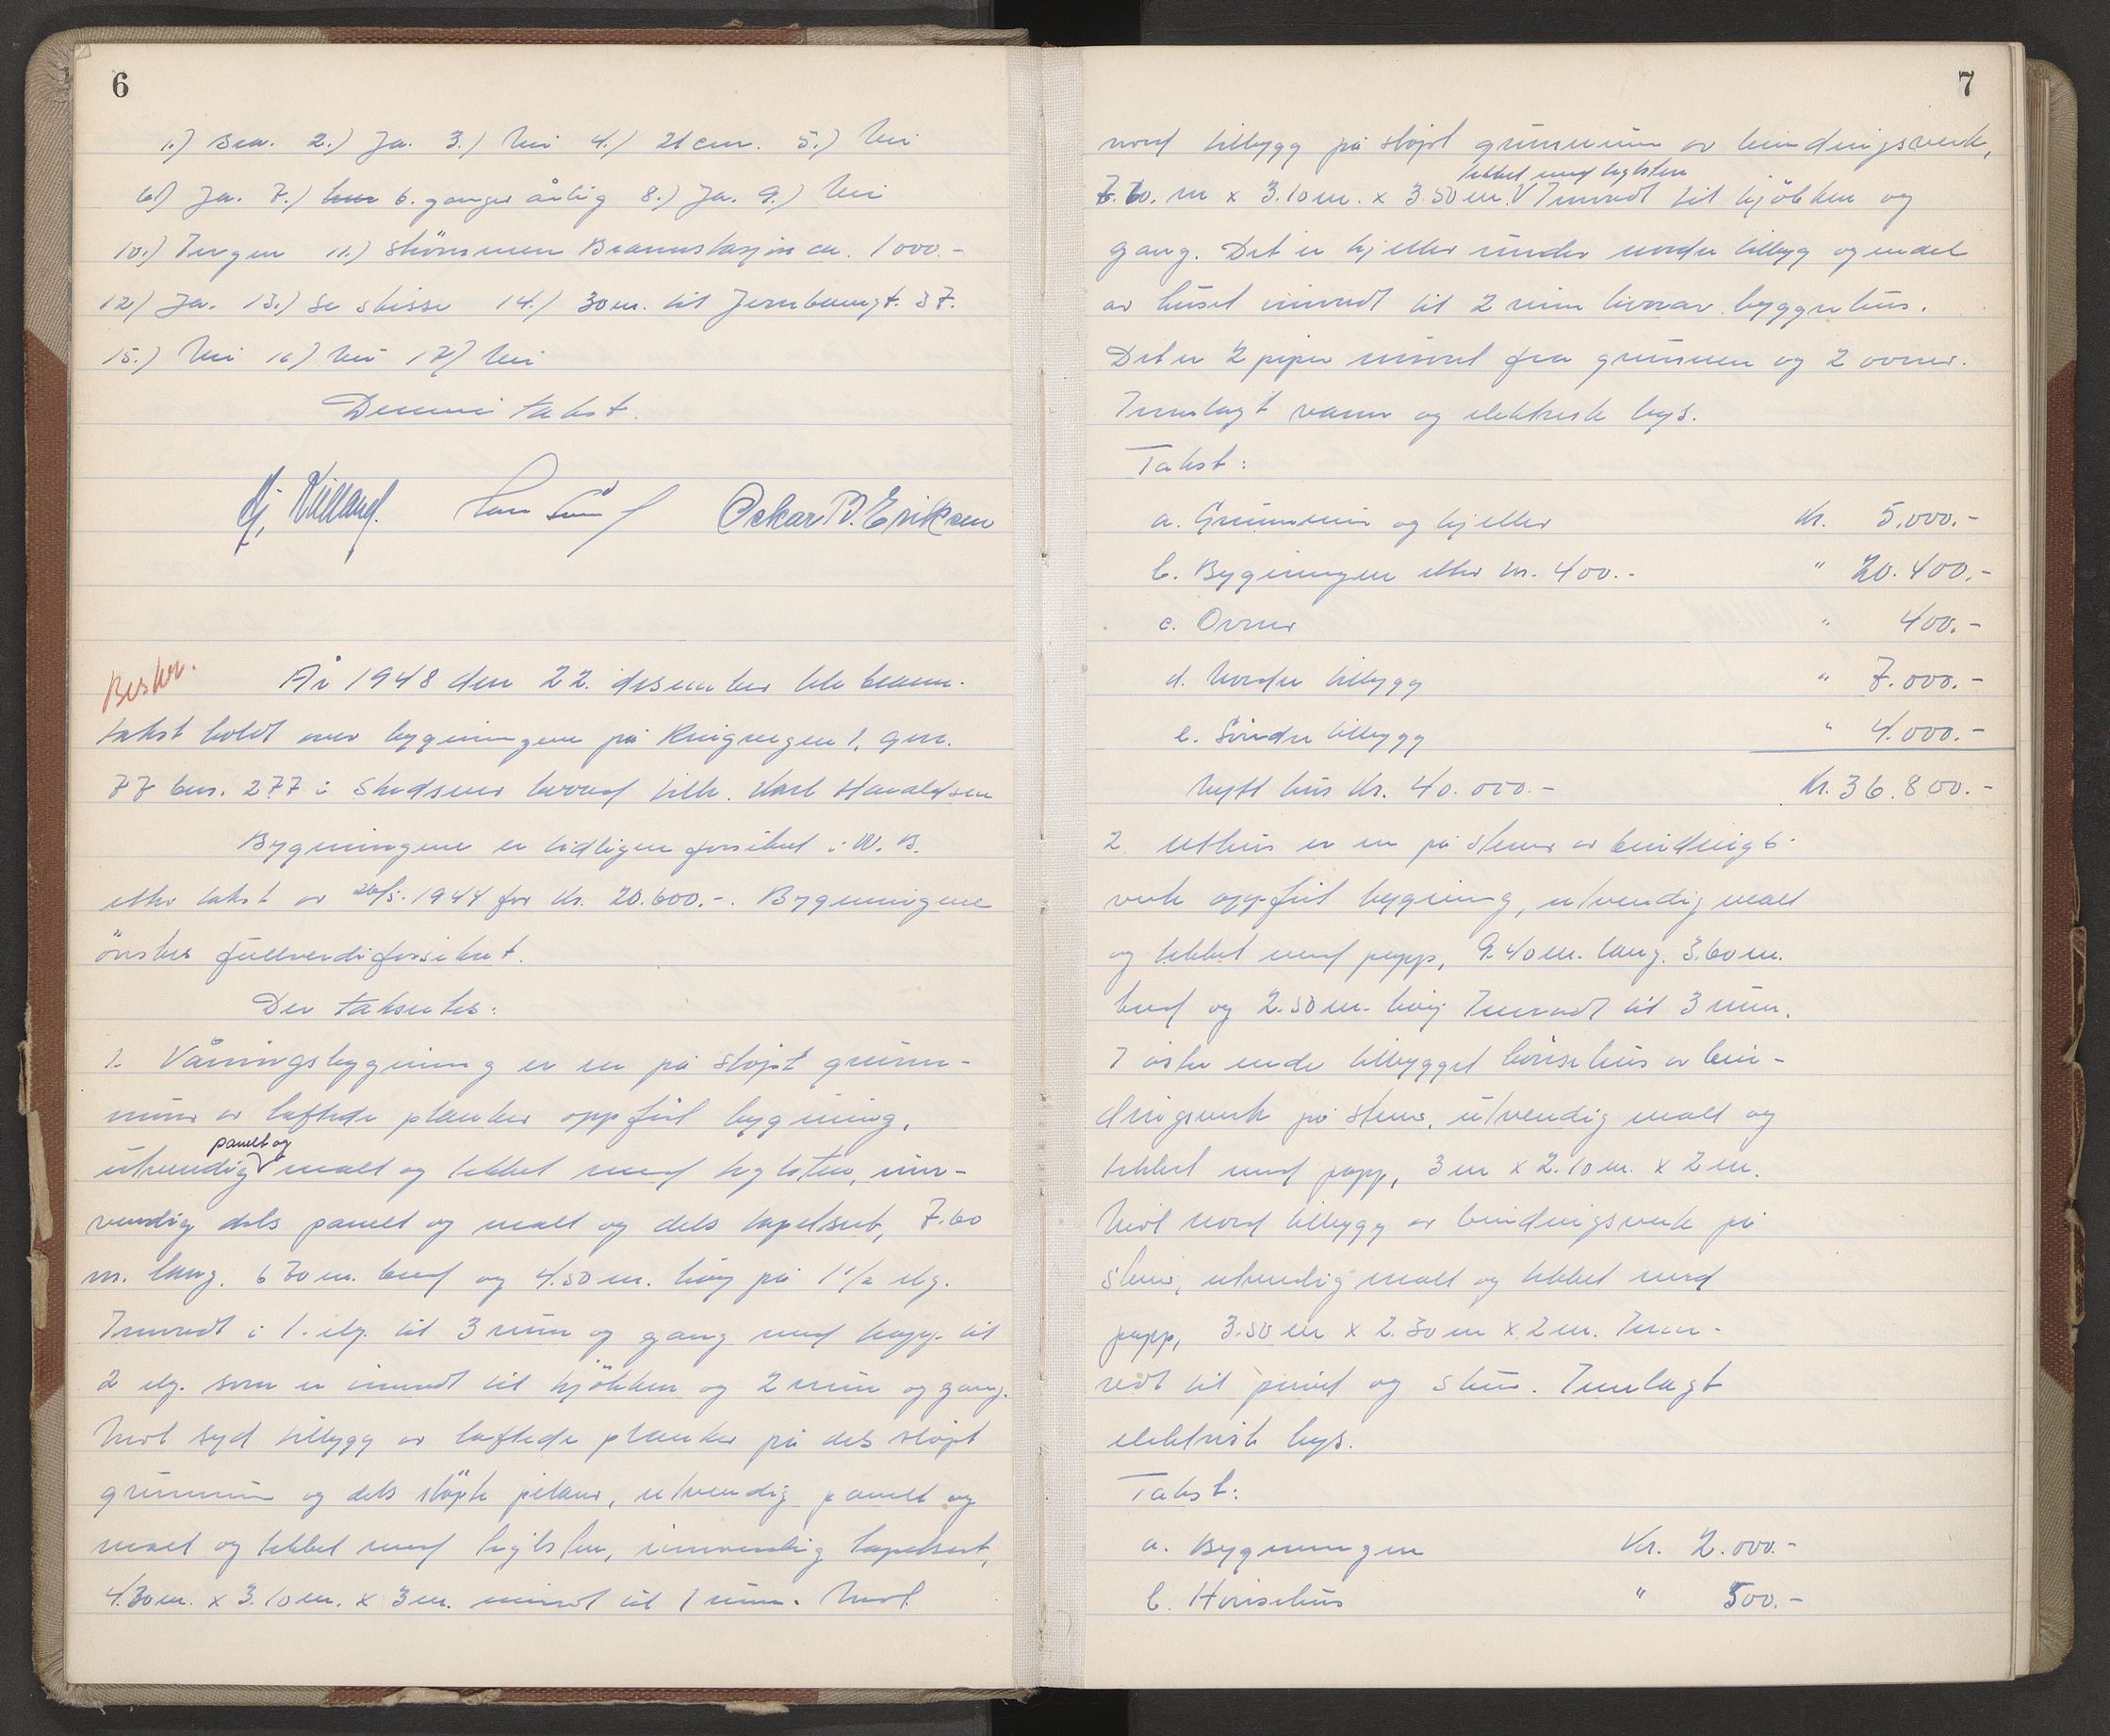 6
1.) Bra. 2.) Ja. 3.) Nei 4.) 21 cm. 5.) Nei
6.) Ja. 7.) 6. ganger årlig 8.) Ja. 9.) Nei
10.) Ingen 11.) Strömmen Brannstasjon ca. 1000.-
12.) Ja. 13.) Se skisse 14.) 30 m. til Jernbanegt. 37.
15.) Nei 16.) Nei 17.) Nei
Denne takst.
Oskar B. Eriksen
Beskr.
År 1948 den 22. desember ble brann-
takst holdt over bygningene på Ringvegen 1, gnr.
77 bnr. 277 i Skedsmo herred tilh. Karl Haraldsen
Bygningene er tidligere forsikret i N. B.
etter takst av 20/5. 1944 for kr. 20.600.-. Bygningene
önskes fullverdiforsikret.
Der takseres:
1. Våningsbygning er en på stöpt grunn-
mur av laftede planker oppfört bygning,
utvendig panelt og malt og tekket med teglsten, inn-
vendig dels panelt og malt og dels tapetsert, 7.60
m. lang. 6 70 m. bred og 4.50 m. höy på 1 1/2 etg.
Innredt i 1. etg. til 3 rum og gang med trapp til
2 etg. som er innredt til kjökken og 2 rum og gang.
Mot syd tilbygg av laftede planker på dels stöpt
grunnmur og dels stöpte pilarer, utvendig panelt og
malt og tekket med teglsten, innvendig tapetsert,
4.30 m. x 3.10 m. x 3 m. innredt til 1 rum. Mot
7
nord tilbygg på stöpt grunnmur av bindingsverk,
tekket med teglsten
7.60. m x 3.10 m. x 3.50 m. Innredt til kjökken og
gang. Det er kjeller under nordre tilbygg og endel
av huset innredt til 2 rum hvorav bryggerhus.
Det er 2 piper murt fra grunnen og 2 ovner.
Innlagt vann og elektrisk lys.
Takst:
a. Grunnmur og kjeller Kr. 5.000.-
b. Bygningen etter kr. 400.- " 20.400.-
c. Ovner " 400.-
d. Nordre tilbygg " 7.000.-
e. Söndre tilbygg " 4.000.-
Nytt hus Kr. 40.000.- Kr. 36.800.-
2. Uthus er en på stener av bindings-
verk oppfört bygning, utvendig malt
og tekket med papp, 9.40 m. lang. 3.60 m.
bred og 2.50 m. höy Innredt til 3 rum.
I östre ende tilbygget hönsehus av bin-
dingsverk på stener, utvendig malt og
tekket med papp, 3 m x 2.10 m. x 2 m.
Mot nord tilbygg av bindingsverk på
stener, utvendig malt og tekket med
papp, 3.50 m x 2.30 m x 2 m. Inn-
redt til privet og skur. Innlagt
elektrisk lys.
Takst:
a. Bygningen Kr. 2.000.-
b. Hönsehus " 500.-